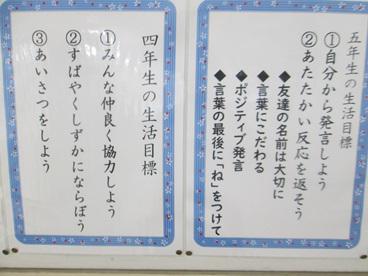 五年生の生活目標
①自分から発言しよう
②あたたかい反応を返そう
◆友達の名前は大切に
◆言葉にこだわる
◆ポジティブ発言
◆言葉の最後に「ね」をつけて
四年生の生活目標
①みんな仲良く協力しよう
②すばやくしずかにならぼう
③あいさつをしよう